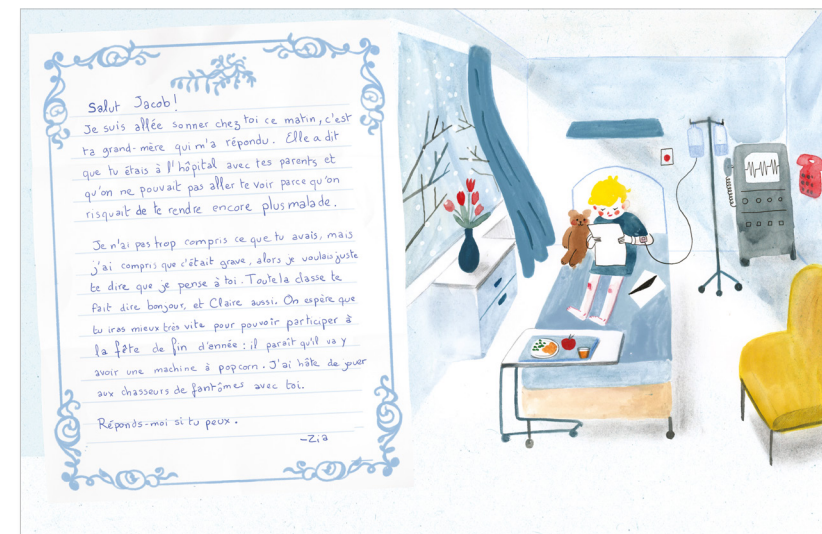 Salut Jacob!
Je suis allée sonner chez toi ce matin, c'est
ta grand-mère qui m'a répondu. Elle a dit
que tu étais à l'hôpital avec tes parents, et
qu'on ne pouvait pas aller te voir parce qu'on
risquait de te rendre encore plus malade.
Je n'ai pas trop compris ce que tu avais, mais
j'ai compris que c'était grave, alors je voulais juste
te dire que je pense à toi. Toute la classe te
fait dire bonjour, et Claire aussi. On espère que
tu iras mieux très vite pour pouvoir participer à
la fête de fin d'année : il paraît qu'il va y
avoir une machine à popcorn. J'ai hâte de jouer
aux chasseurs de fantômes avec toi.
Réponds-moi si tu peux.
-Zia